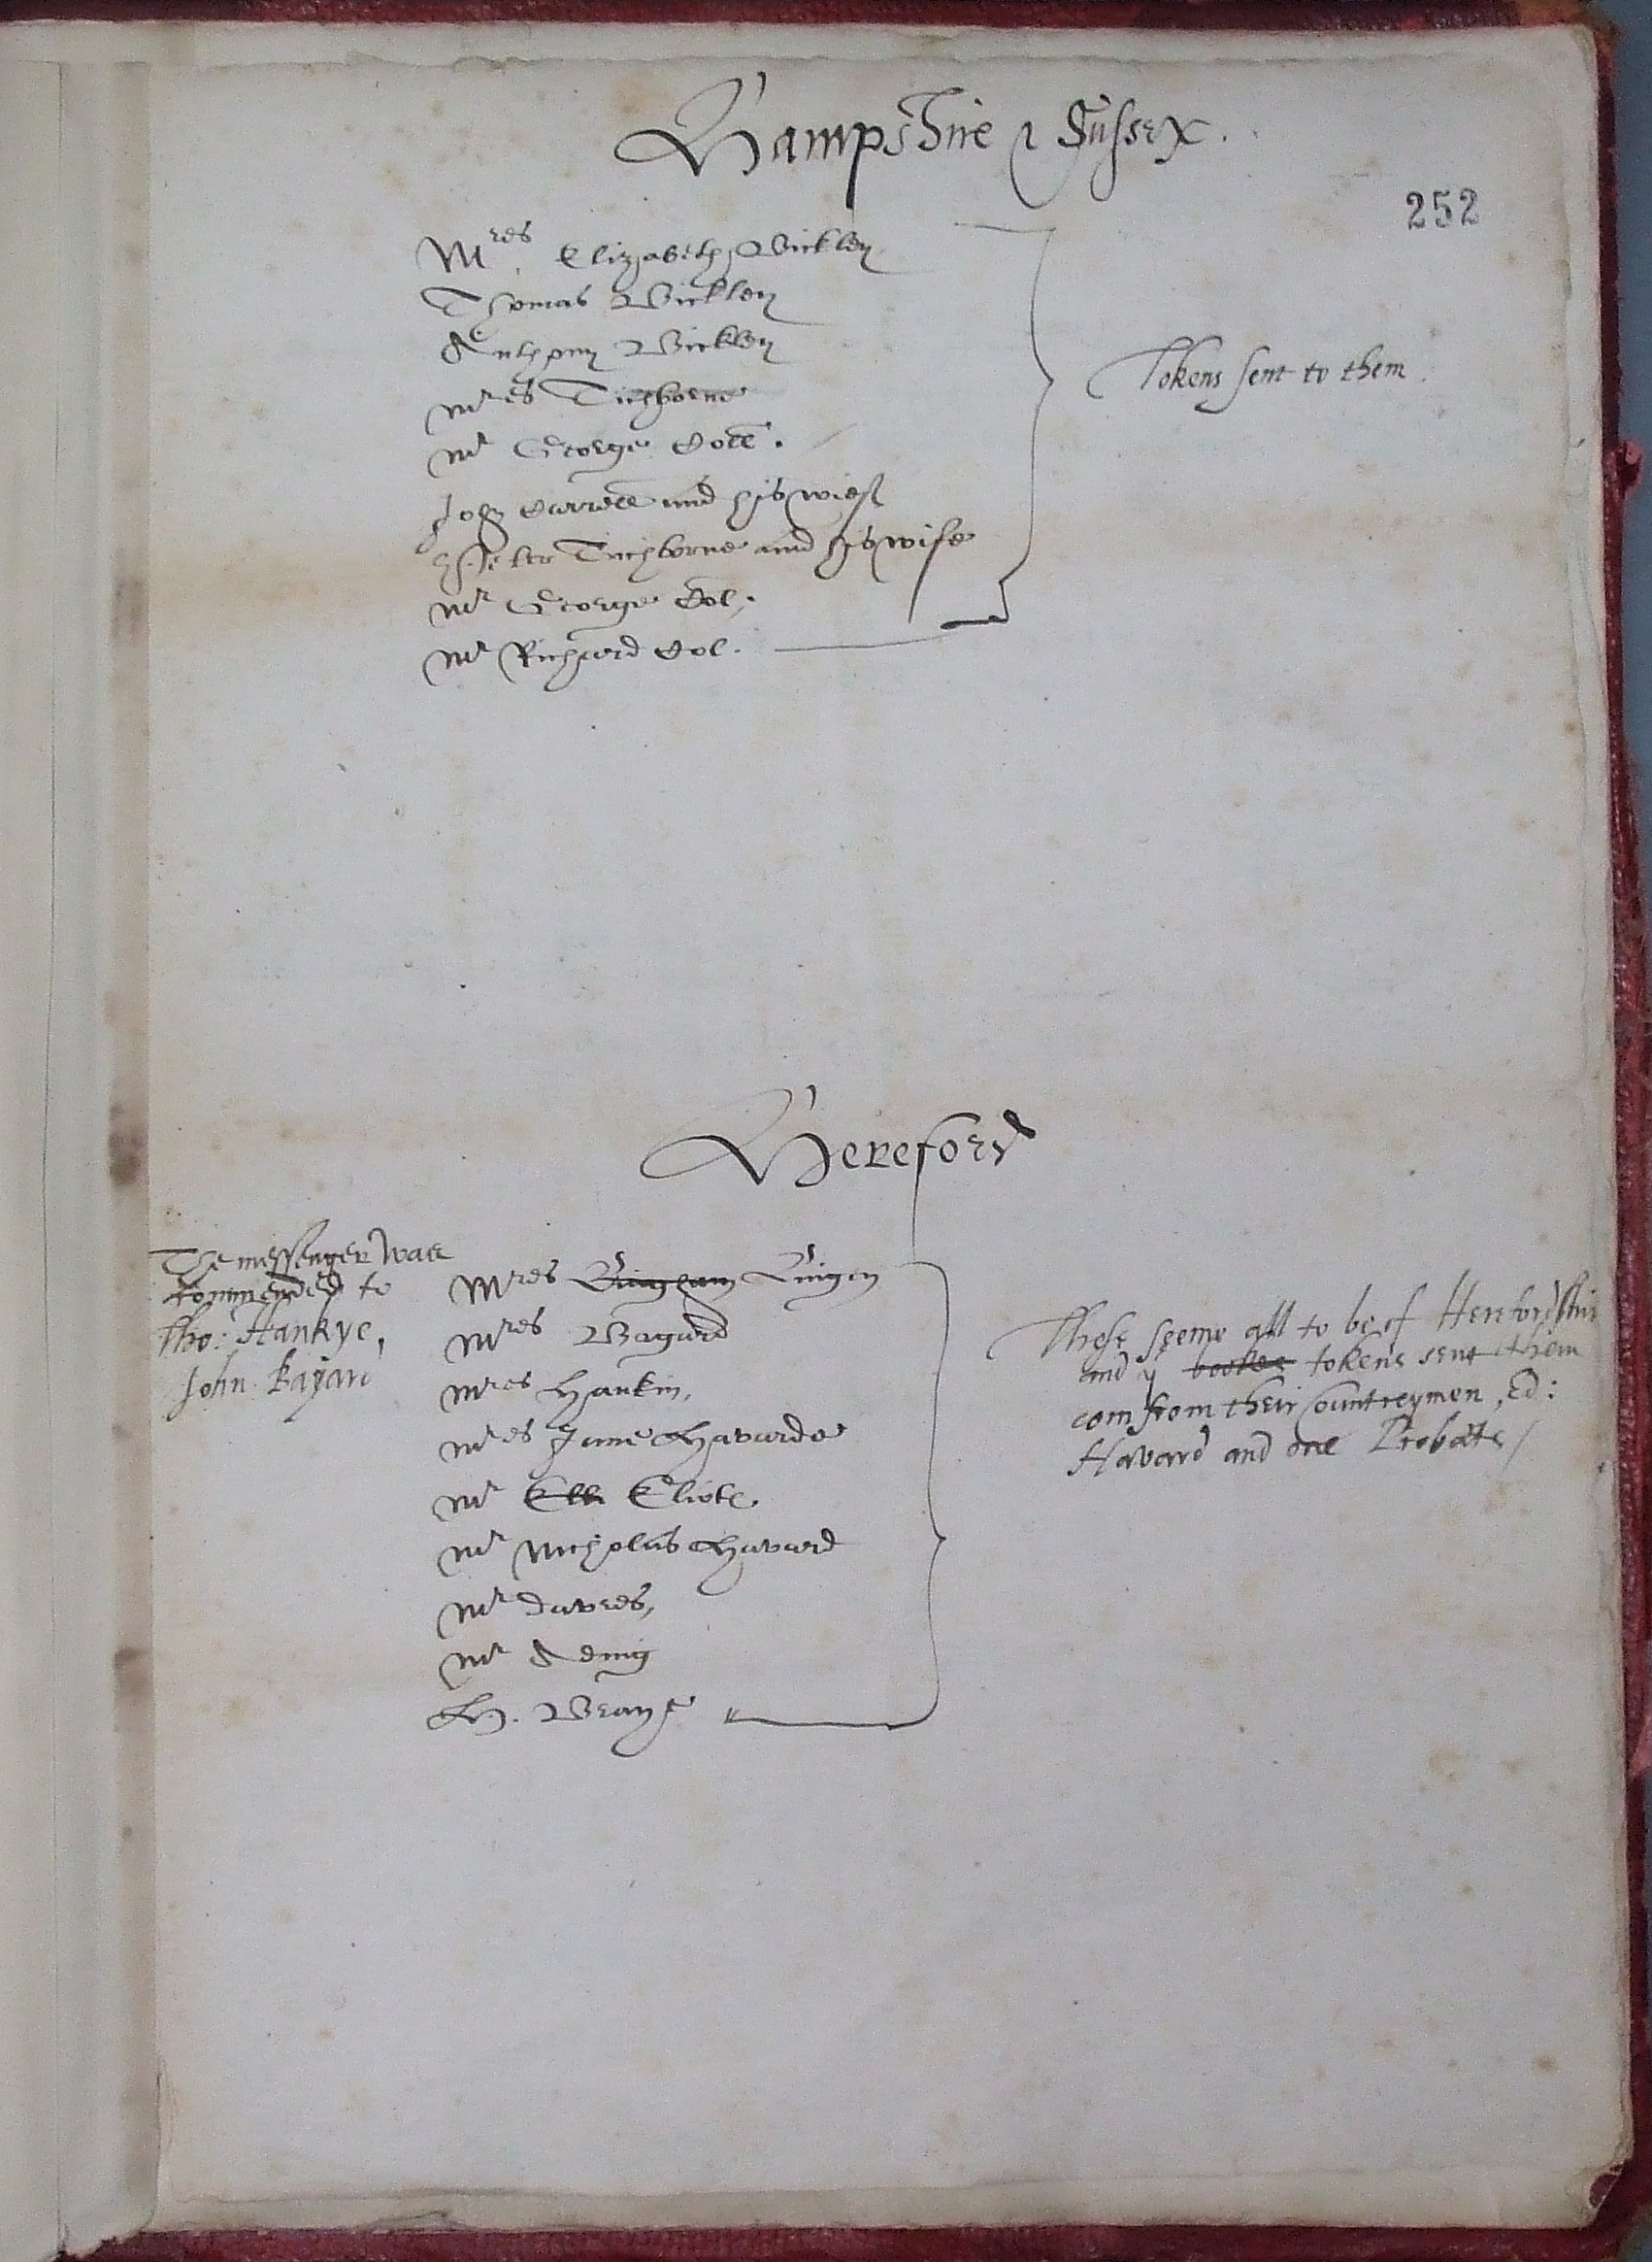 Hampshire & Sussex.
252
Mres Elizabeth Bickley
Thomas Bickley
Anthony Bickley
Mres Tichborne
Mr George Cott.
John and his wief
Peter Tichborne and his wife
Mr George Cot.
Mr Richard Cot.
Tokens sent to them.
Hereford
The messenger was
commended to
Tho: Hankye,
John Bayard
Mres Bingham Lingen
Mres Bagard
Mres Hankin,
Mres Jane Havarde
Mr Elli Eliote.
Mr Nicholas Havard
Mr Davies,
Mr
H.
These seeme all to be of Herefordshir
and ye bookes tokens sent them
com from their Countreymen, Ed:
Havard and one Probate /